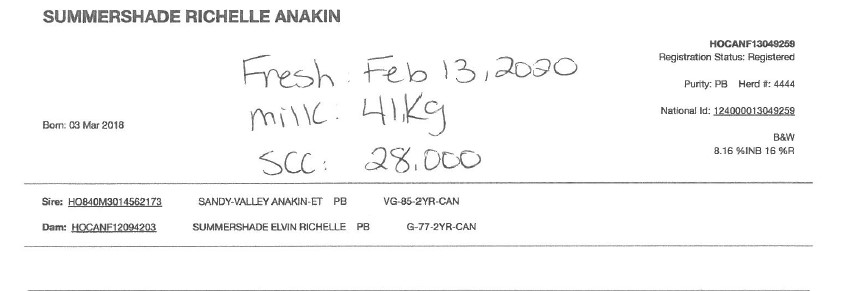 SUMMERSHADE RICHELLE ANAKIN
HOCANF13049259
Registration Status: Registered
Fresh: Feb 13, 2020
Purity: PB Herd #: 4444
milk: 41kg
National Id: 124000013049259
Born: 03 Mar 2018
B&W
SCC: 28,000
8.16 %INB 16 %R
Sire: HO840M3014562173 SANDY-VALLEY ANAKIN-ET PB VG-85-2YR-CAN
Dam: HOCANF12094203 SUMMERSHADE ELVIN RICHELLE PB G-77-2YR-CAN